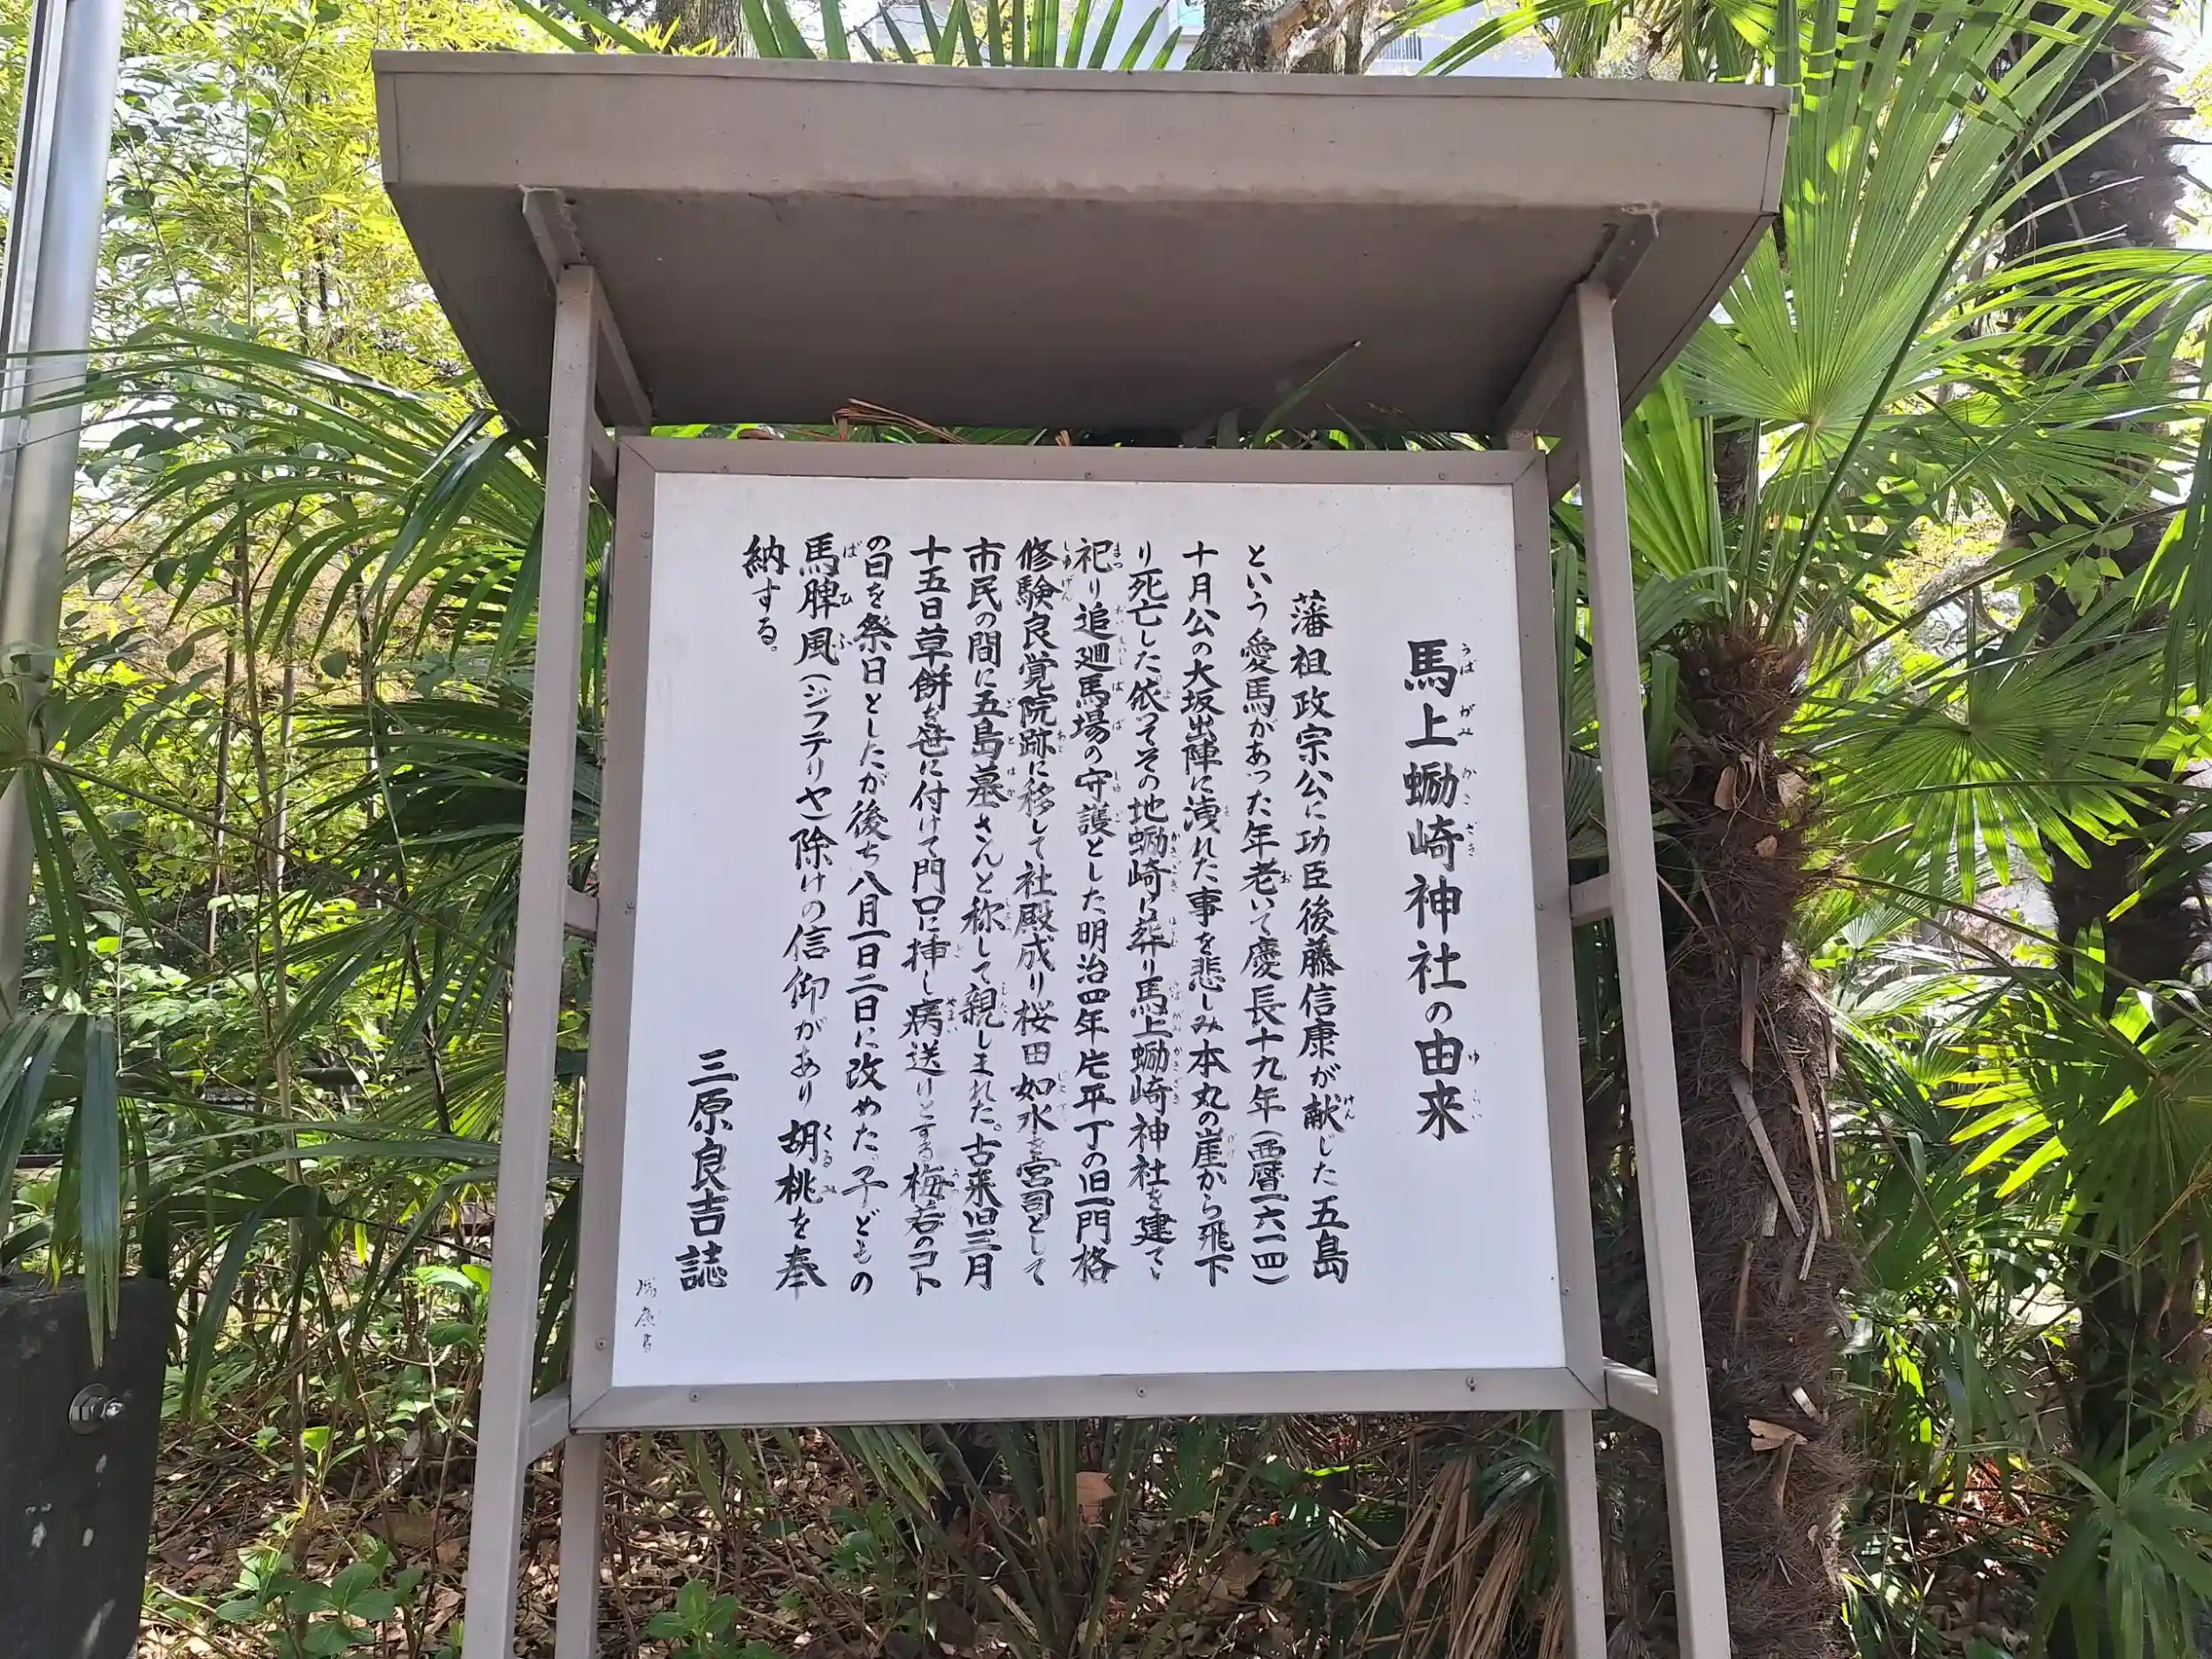 馬上蛎崎神社の由来
藩祖政宗公に功臣後藤信康が献じた五島
という愛馬があった年老いて慶長十九年(西暦一六一四)
十月公の大坂出陣に洩れた事を悲しみ本丸の崖から飛下
り死亡した、依ってその地蛎崎に葬り馬上蛎崎神社を建て、
祀り追廻馬場の守護とした明治四年片平丁の旧一門格
修験良覚院跡に移して社殿成り桜田如水を宮司として
市民の間に五島墓さんと称して親しまれた。古来旧三月
十五日草餅を笹に付けて門口に挿し病送りとする梅若のコト
の日を祭日としたが後ち八月一日二日に改めた、子どもの
馬脾風(ジフテリヤ)除けの信仰があり胡桃を奉
納する。
三原良吉誌